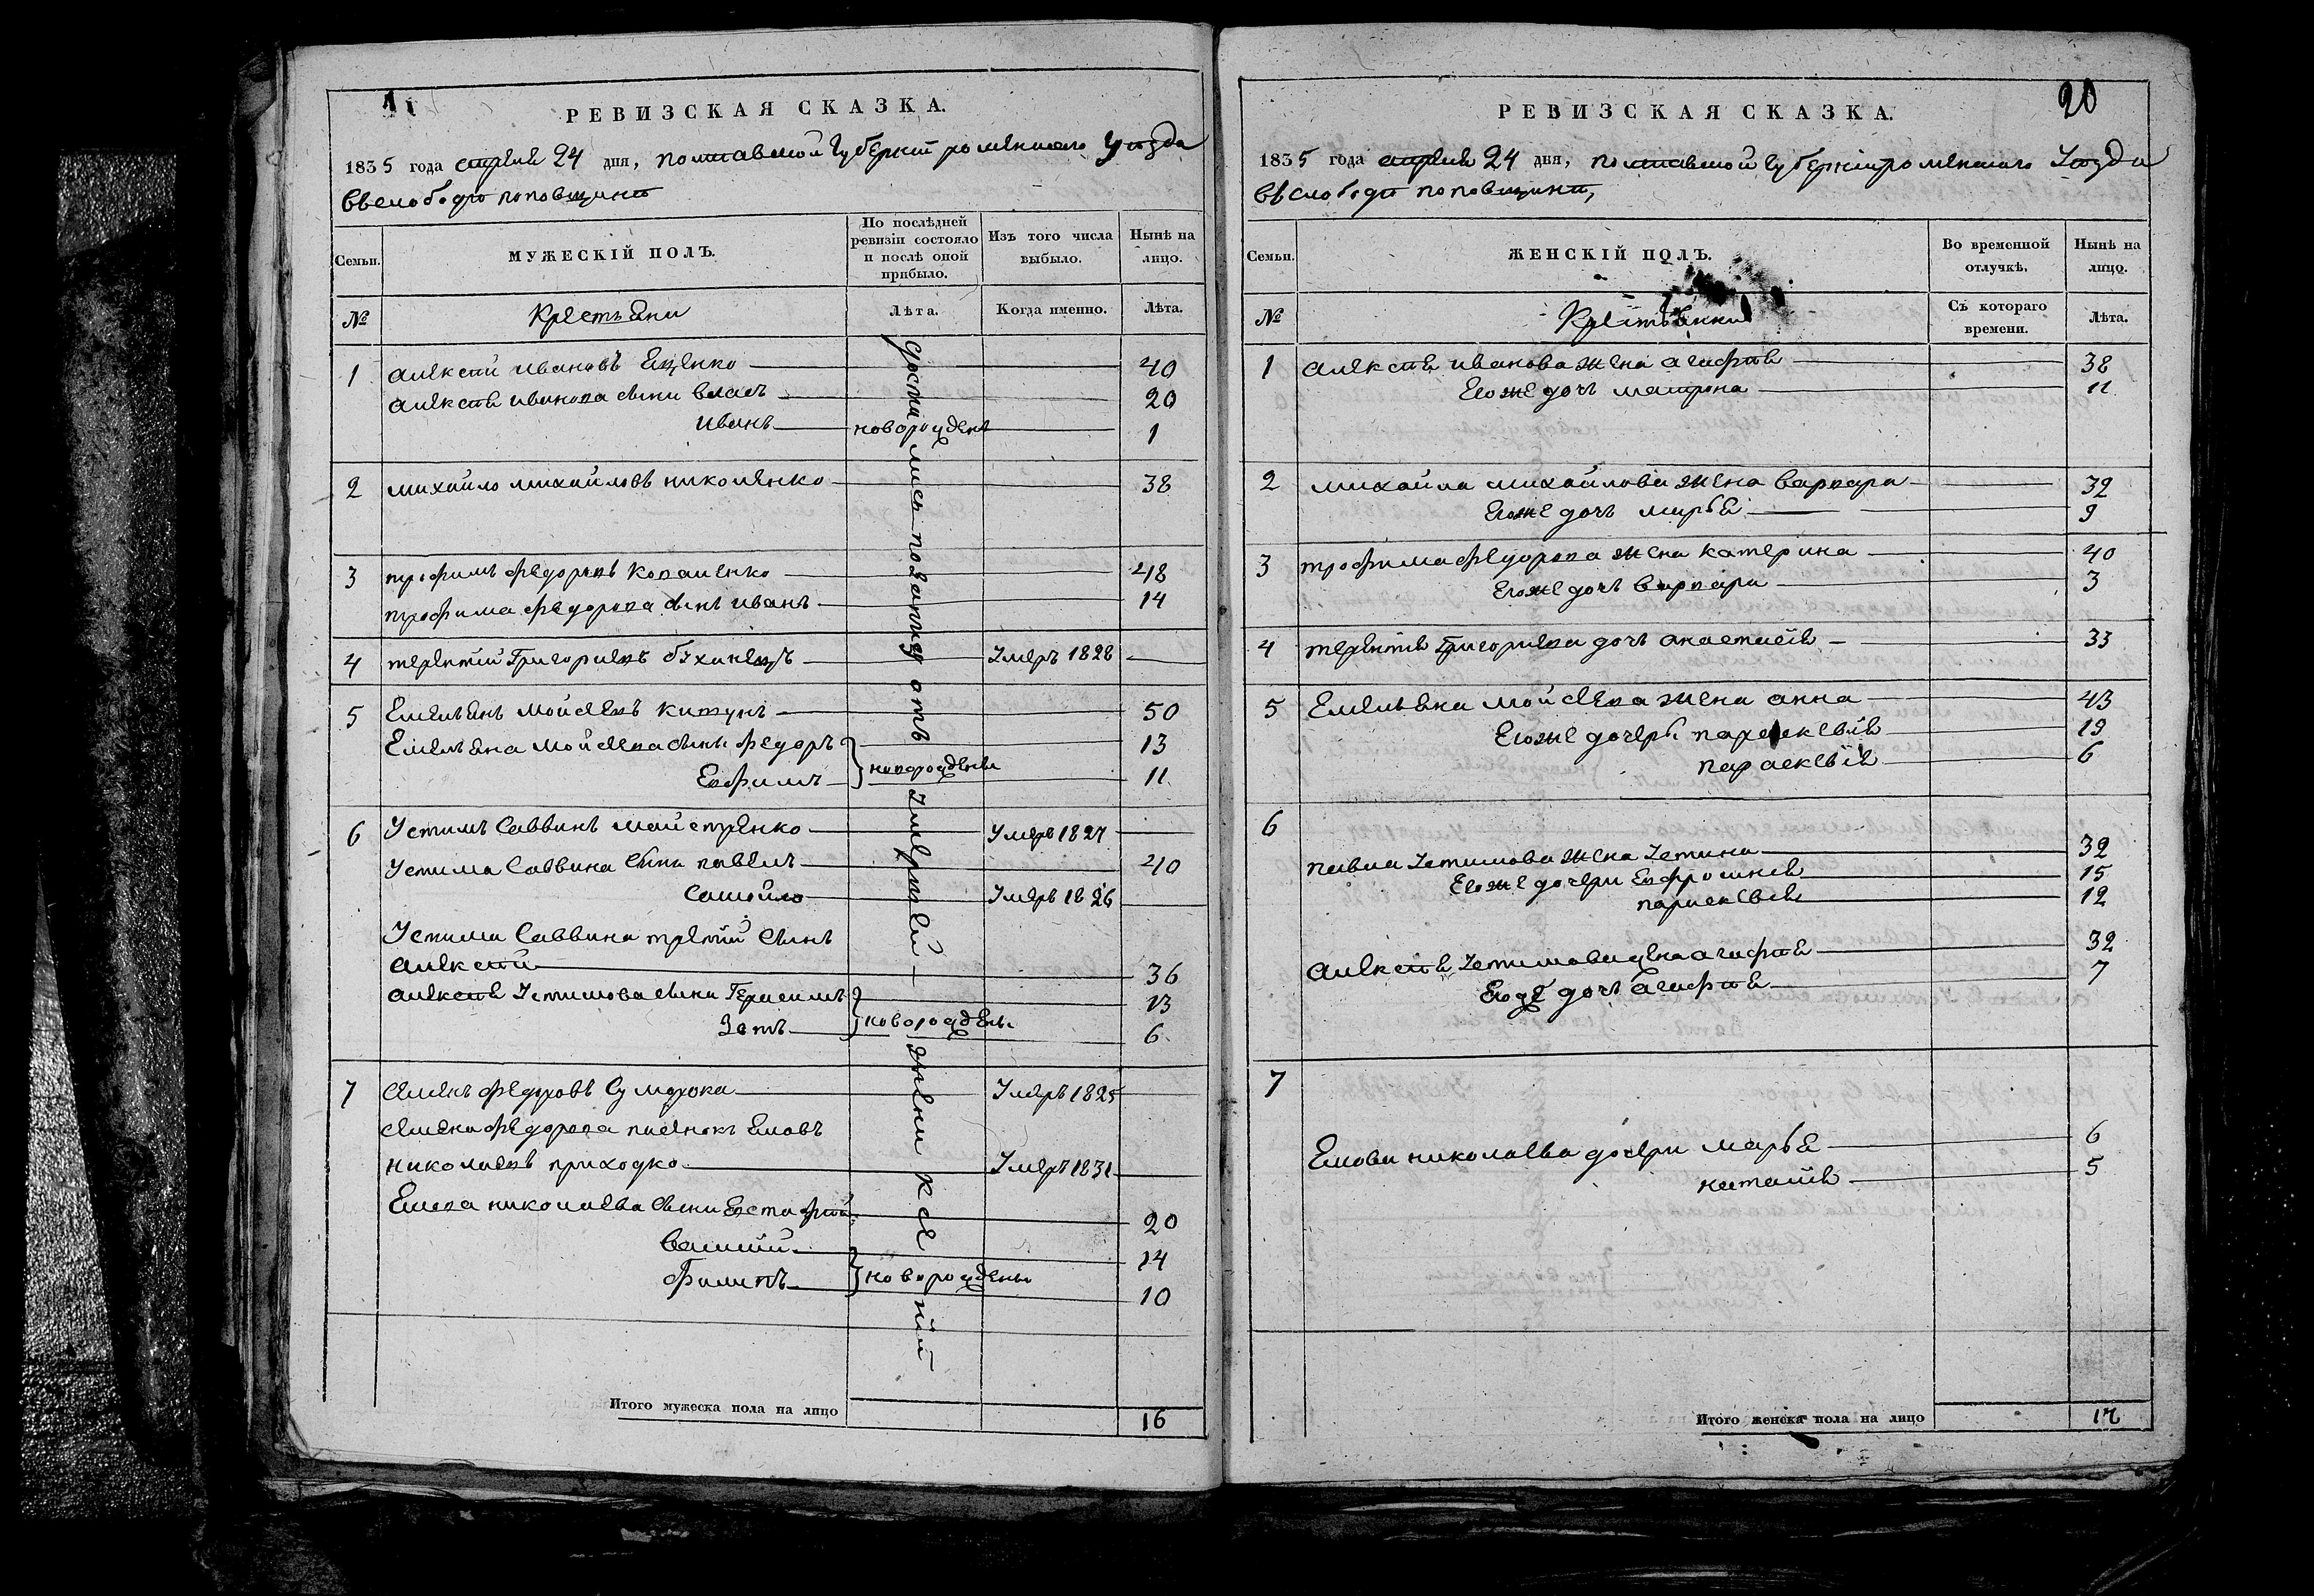 РЕВИЗСКАЯ СКАЗКА.
1835 года апреля 24 дня, полтавской Губернiи роменского Уѣзда
Въ слободѣ поповщинѣ
Семьи.
МУЖЕСКІЙ ПОЛЪ.
По послѣдней ревизіи состояло и послѣ оной прибыло.
Изъ того числа выбыло.
Нынѣ на лицо.
№
Крестьяни
Лѣта.
Когда именно.
Лѣта.
1 алексѣй ивановъ Ященко 40
алексѣя иванова сыни власъ 20
иванъ новорожденъ 1
2 михайло михайловъ николенко 38
3 трофимъ федоровъ 48
трофима федорова сынъ иванъ 14
4 терентiй Григориевъ Умеръ 1828
5 Емельянъ мойсѣевъ 50
Емельяна мойсѣева сыни федоръ 13
Евфимъ новорождены 11
6 Устимъ Саввинъ майстренко Умеръ 1827
Устима Саввина сыни павелъ 40
Самойло Умеръ 1826
Устима Саввина третiй сынъ
алексѣй 36
алексѣя Устимова сыни Герасимъ 13
Зотъ новорожден. 6
7 семенъ федоровъ Суморока Умеръ 1825
семена федорова Еловъ
николаевъ приходко Умеръ 1831
николаева сыни Евстафiй 20
василiй 14
Филипъ новорождены 10
отъ Умертей
Итого мужеска пола на лицо 16
20
РЕВИЗСКАЯ СКАЗКА.
1835 года апреля 24 дня, полтавской Губернiи роменского Уѣзда
Въ слободѣ поповщинѣ,
Семьи.
ЖЕНСКІЙ ПОЛЪ.
Во временной отлучкѣ.
Нынѣ на лицо.
№
Крестьянки
Съ котораго времени.
Лѣта.
1 алексѣя иванова жена агафiя 38
Его же дочъ матрона 11
2 михайла михайлова жена варвара 32
Его же дочъ марья 9
3 трофима федорова жена катерина 40
Его же дочъ варвара 3
4 терентiя Григориева дочъ анастасiя 33
5 Емельяна мойсѣева жена анна 43
Его же дочери параскевiя 19
параскевiя 6
6
павла Устимова жена Устина 32
Его же дочери Евфросинiя 15
параскевiя 12
алексѣя Устимова жена агафiя 32
Его же дочъ агафiя 7
7
николаева дочери марья 6
наталiя 5
Итого женска пола на лицо 17